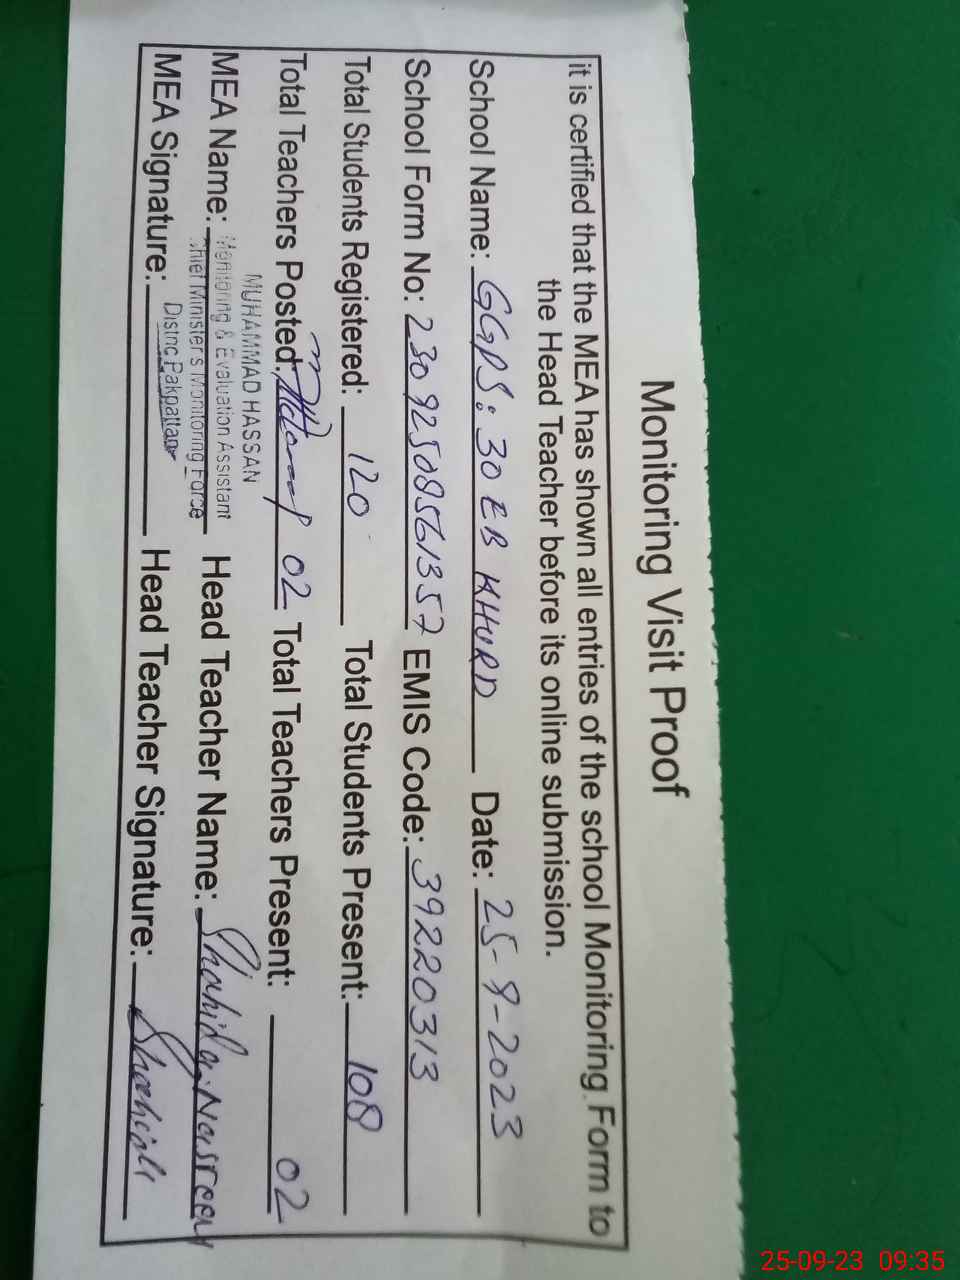 Monitoring Visit Proof
it is certified that the MEA has shown all entries of the school Monitoring Form to
the Head Teacher before its online submission.
School Name: GGPS: 30 EB KHURD Date: 25-9-2023
School Form No: 23092508561357 EMIS Code: 39220313
Total Students Registered: 120 Total Students Present: 108
Total Teachers Posted: 02 Total Teachers Present: 02
MUHAMMAD HASSAN
Monitoring & Evaluation Assistant
Chief Minister's Monitoring Force
District Pakpattan
MEA Name: Head Teacher Name: Shahida Nasreen
MEA Signature: Head Teacher Signature: Shahida
25-09-23 09:35